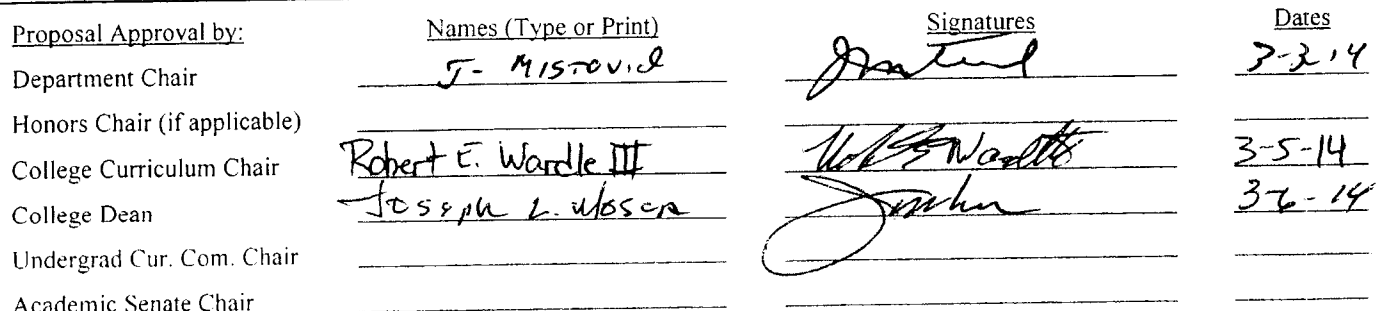 Proposal Approval by: Names (Type or Print) Signatures Dates
Department Chair J- MISTOVICH 3-3-14
Honors Chair (if applicable)
College Curriculum Chair Robert E. Wardle III 3-5-14
College Dean Joseph L. Mosca 3-6-14
Undergrad Cur. Com. Chair
Academic Senate Chair